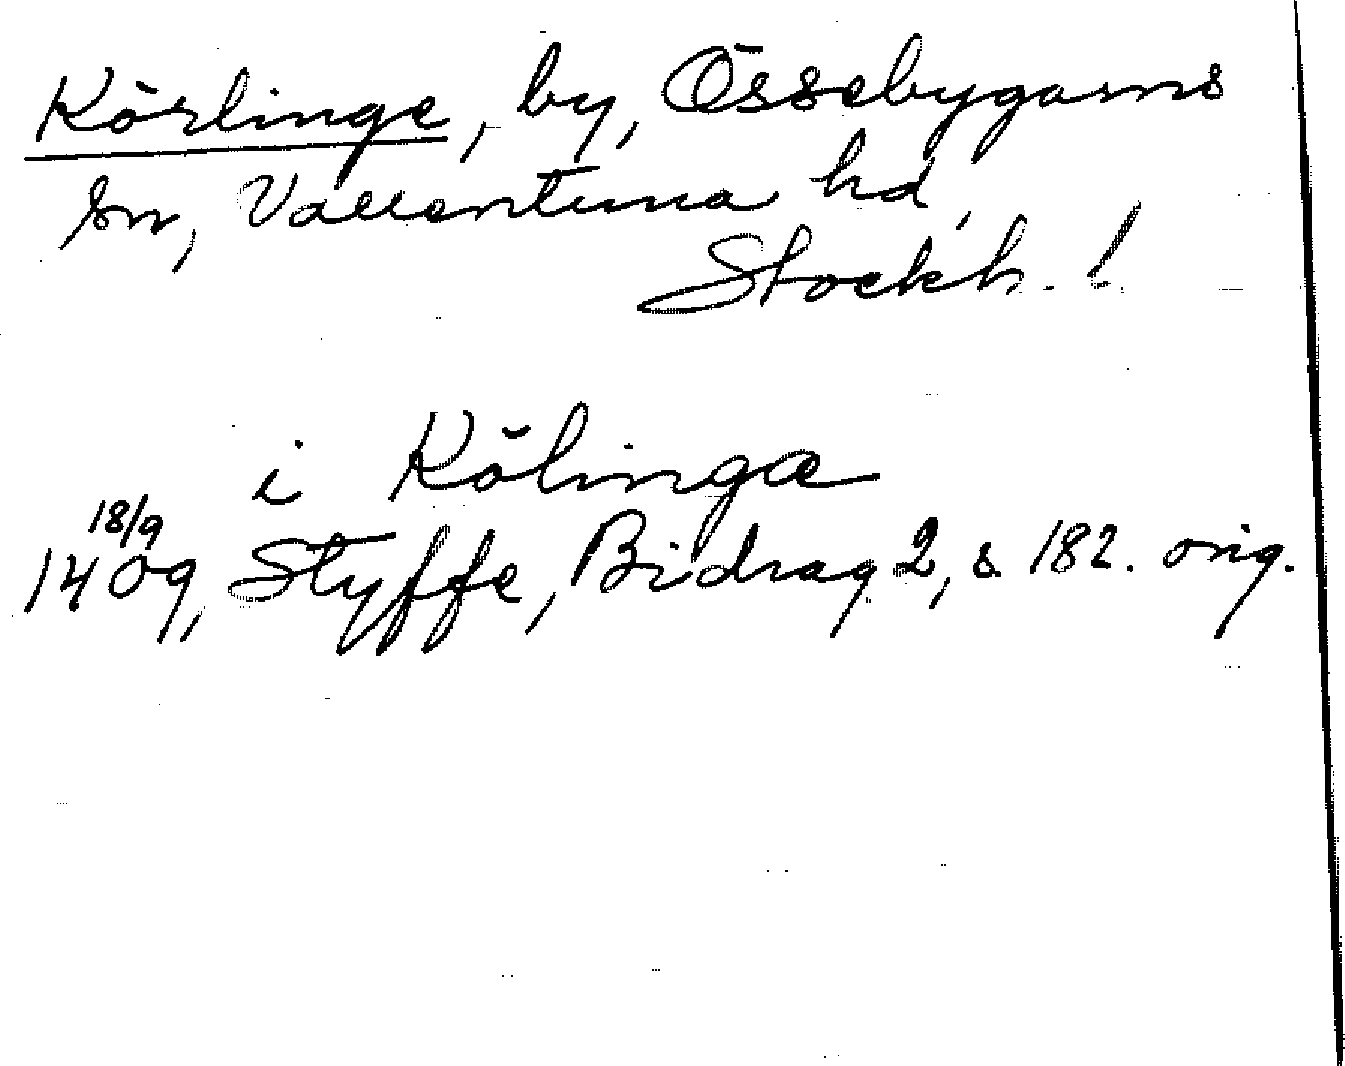 Körlinge, by, Össebygarns
sn, Vallentuna hd,
Stockh. l.
i Kölinga
18/9
1409, Styffe, Bidrag 2, s. 182. orig.